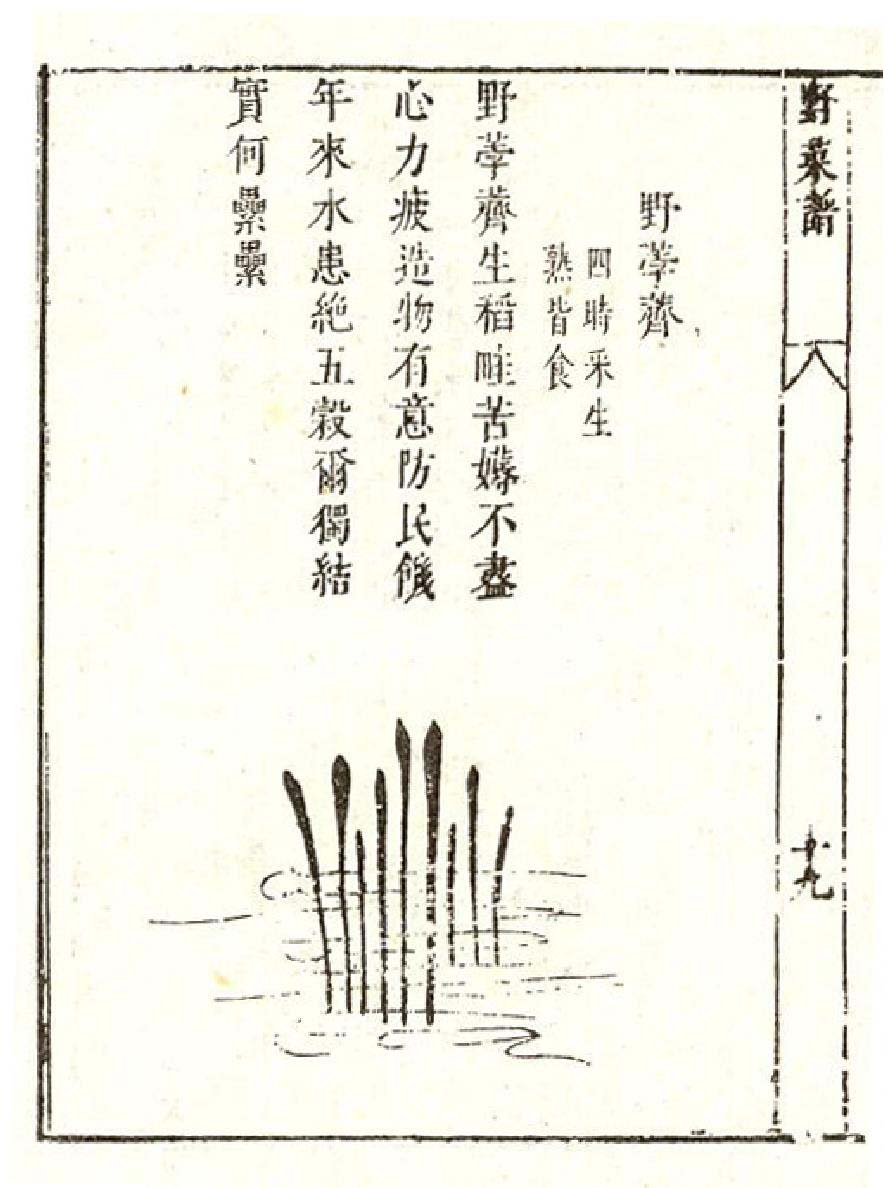 野菜譜
十九
野荸薺
四時采生
熟皆食
野荸薺生稻畦苦薅不盡
心力疲造物有意防民饑
年來水患絶五穀爾獨結
實何纍纍